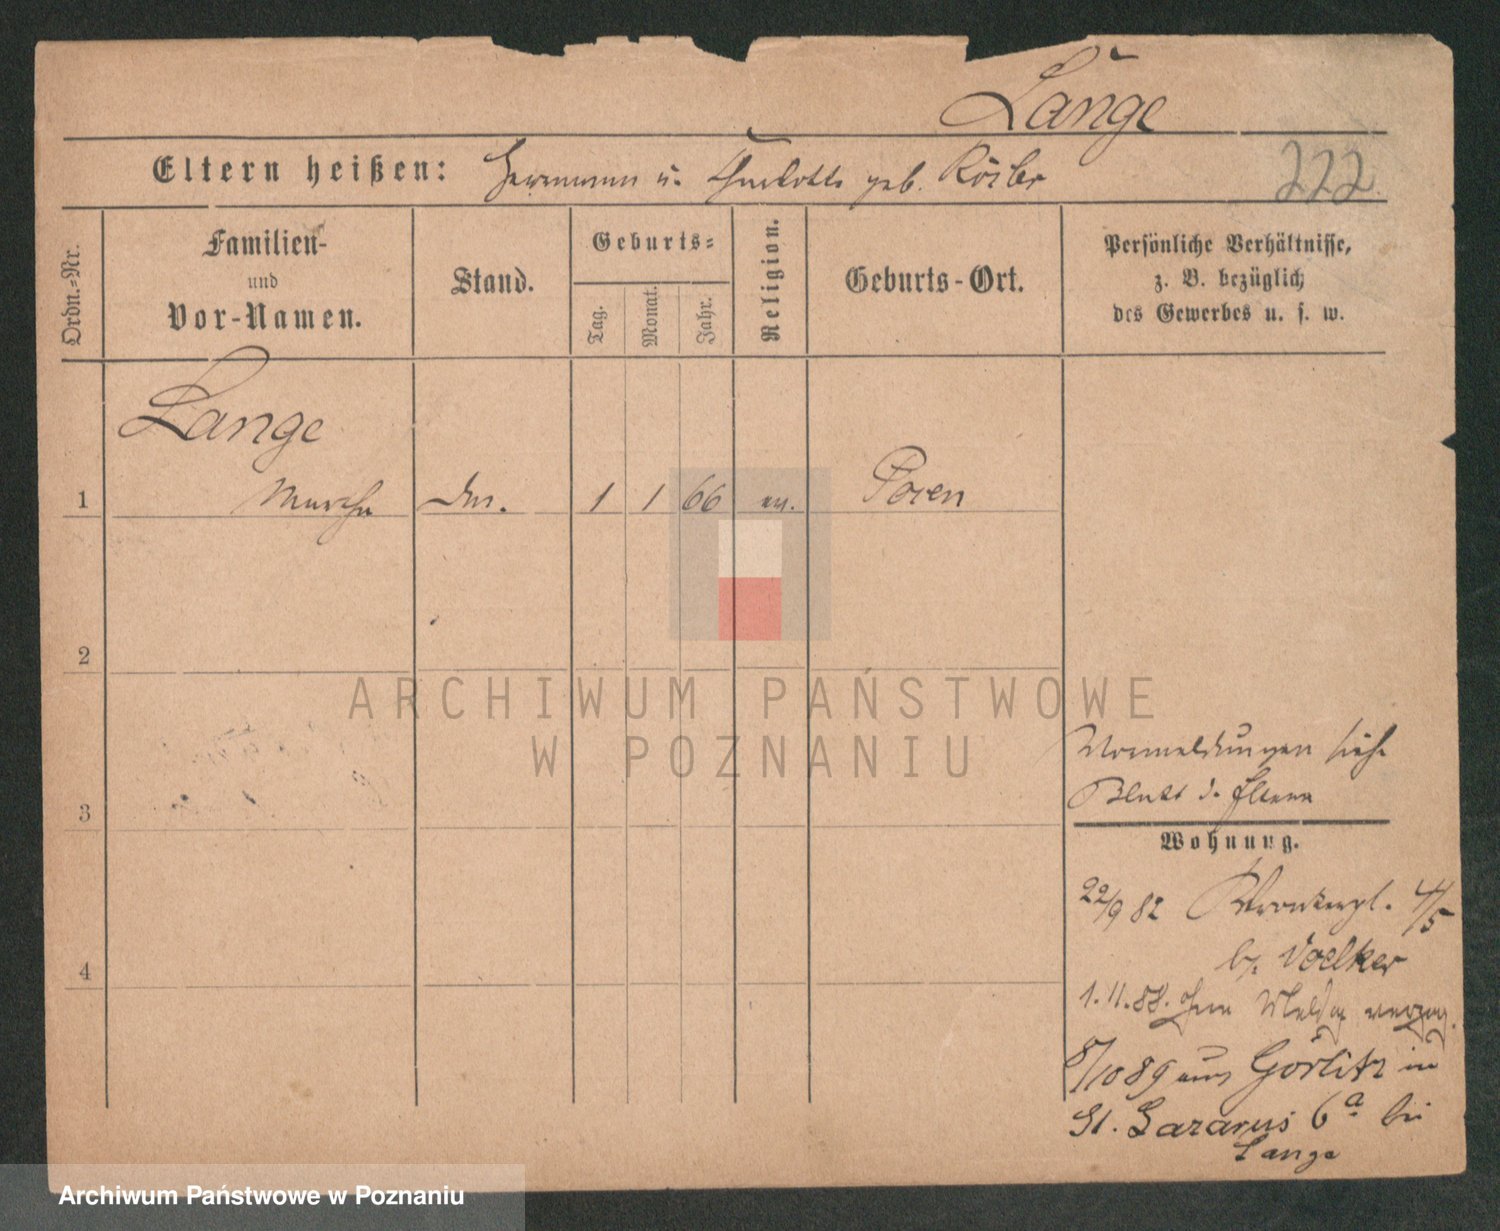 Lange
Eltern heißen: Hermann u. Charlotte geb. Rösler
222
Ordn.-Nr.
Familien-
und
Vor-Namen.
Stand.
Geburts-
Tag.
Monat.
Jahr.
Religion.
Geburts-Ort.
Persönliche Verhältnisse,
z. B. bezüglich
des Gewerbes u. s. w.
Lange
1 Martha 1 1 66 ev. Posen
2
3
4
Vormeldungen siehe
Blatt d. Eltern
Wohnung.
22/9 82 Wronkerpl. 4/5
b. Voelker
1.11.88. ohne Meldg verzog.
8/10 89 aus Görlitz in
St. Lazarus 6a bei
Lange
ARCHIWUM PAŃSTWOWE
W POZNANIU
Archiwum Państwowe w Poznaniu